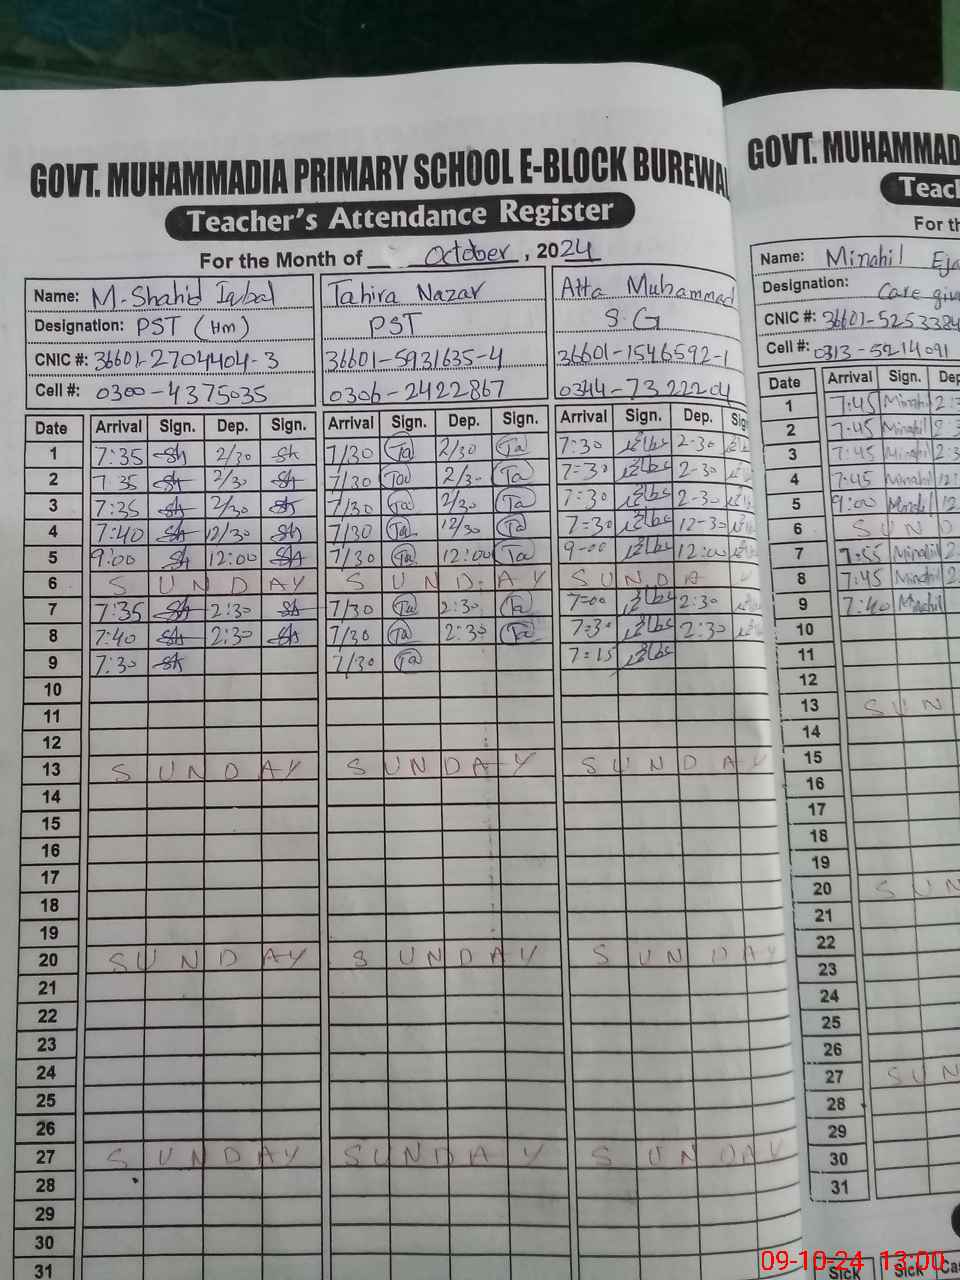 GOVT. MUHAMMADIA PRIMARY SCHOOL E-BLOCK BUREWA
Teacher's Attendance Register
For the Month of October, 2024
Name: M-Shahid Iqbal Tahira Nazar Atta Muhammad
Designation: PST (Hm) PST S.G
CNIC #: 36601-2704404-3 36601-5931635-4 36601-1546592-1
Cell #: 0300-4375035 0306-2422867 0344-7322204
Date Arrival Sign. Dep. Sign. Arrival Sign. Dep. Sign. Arrival Sign. Dep. Sig
1 7:35 Sh 2/30 Sh 7/30 Ta 2/30 Ta 7:30 2-30
2 7:35 Sh 2/30 Sh 7/30 Ta 2/30 Ta 7=30 2-30
3 7:35 Sh 2/30 Sh 7/30 Ta 2/30 Ta 7=30 2-30
4 7:40 Sh 12/30 Sh 7/30 Ta 12/30 Ta 7=30 12-30
5 9:00 Sh 12:00 Sh 7/30 Ta 12:00 Ta 9-00 12:00
6 SUNDAY SUNDAY SUNDAY
7 7:35 Sh 2:30 Sh 7/30 Ta 2:30 Ta 7=00 2:30
8 7:40 Sh 2:30 Sh 7/30 Ta 2:30 Ta 7=30 2:30
9 7:30 Sh 7/30 Ta 7=15
10
11
12
13 SUNDAY SUNDAY SUNDAY
14
15
16
17
18
19
20 SUNDAY SUNDAY SUNDAY
21
22
23
24
25
26
27 SUNDAY SUNDAY SUNDAY
28
29
30
31
GOVT. MUHAMMAD
Teac
For th
Name: Minahil Eja
Designation: Care giv
CNIC #: 36601-5253384
Cell #: 0313-5214091
Date Arrival Sign. Dep
1 7:45 Minahil 2:3
2 7:45 Minahil 2:3
3 7:45 Minahil 2:3
4 7:45 Minahil 12:
5 9:00 Minahil 12
6 SUND
7 7:55 Minahil 2
8 7:45 Minahil 2
9 7:40 Minahil
10
11
12
13 SUN
14
15
16
17
18
19
20 SUN
21
22
23
24
25
26
27 SUN
28
29
30
31
Sick Sick Ca
09-10-24 13:00